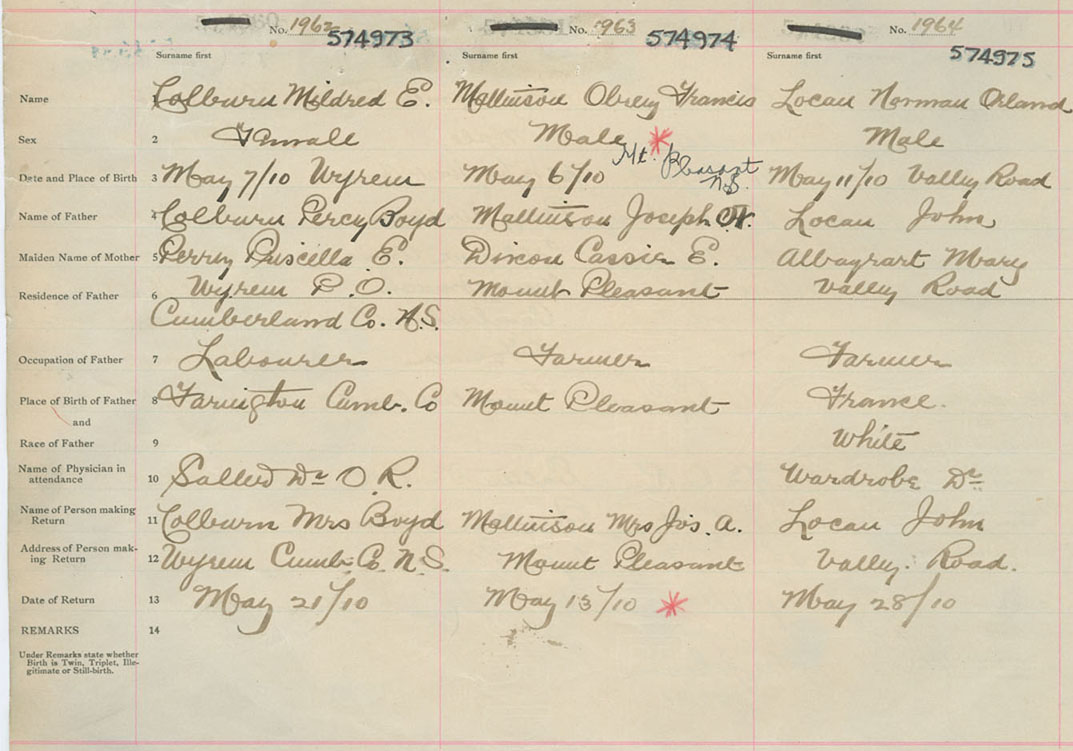 No. 1962 574973 No. 1963 574974 No. 1964 574975
Surname first Surname first Surname first
Name Colburn Mildred E. Mattinson Obrey Francis Locau Norman Orland
Sex 2 Female Male * Male
Date and Place of Birth 3 May 7/10 Wyrem May 6/10 Mt. Pleasant N.S. May 11/10 Valley Road
Name of Father 4 Colburn Percy Boyd Mattinson Joseph A. Locau John
Maiden Name of Mother 5 Perry Priscilla E. Dixon Cassie E. Mary
Residence of Father 6 Wyrem P.O. Mount Pleasant Valley Road
Cumberland Co. N.S.
Occupation of Father 7 Labourer Farmer Farmer
Place of Birth of Father 8 Farington Cumb. Co Mount Pleasant France.
and
Race of Father 9 White
Name of Physician in
attendance 10 Dr O.R. Wardrobe Dr
Name of Person making
Return 11 Colburn Mrs Boyd Mattinson Mrs Jos. A. Locau John
Address of Person mak-
ing Return 12 Wyrem Cumb. Co. N.S. Mount Pleasant Valley. Road.
Date of Return 13 May 21/10 May 13/10 * May 28/10
REMARKS 14
Under Remarks state whether
Birth is Twin, Triplet, Ille-
gitimate or Still-birth.